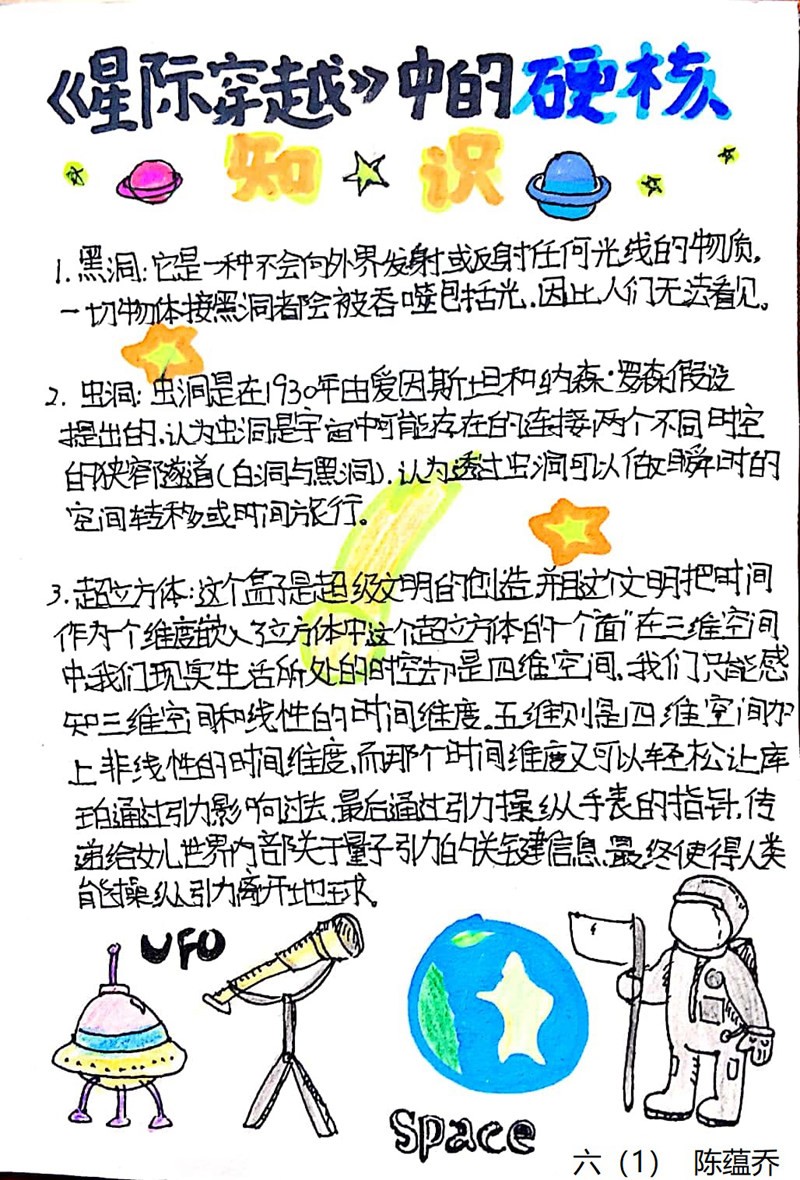 《星际穿越》中的硬核
知识
1.黑洞:它是一种不会向外界发射或反射任何光线的物质,
一切物体接黑洞者都会被吞噬包括光,因此人们无法看见。
2. 虫洞:虫洞是在1930年由爱因斯坦和纳森·罗森假设
提出的,认为虫洞是宇宙中可能存在的连接两个不同时空
的狭窄隧道(白洞与黑洞),认为透过虫洞可以做瞬时的
空间转移或时间旅行。
3.超立方体:这个盒子是超级文明的创造,并且这个文明把时间
作为一个维度嵌入了立方体中这个超立方体的一个"面"在三维空间
中,我们现实生活所处的时空却是四维空间,我们只能感
知三维空间和线性的时间维度。五维则是四维空间加
上非线性的时间维度,而那个时间维度又可以轻松让库
珀通过引力影响过去,最后通过引力操纵手表的指针,传
递给女儿世界内部关于量子引力的关键信息,最终使得人类
能操纵引力离开地球。
UFO
Space
六(1) 陈蕴乔